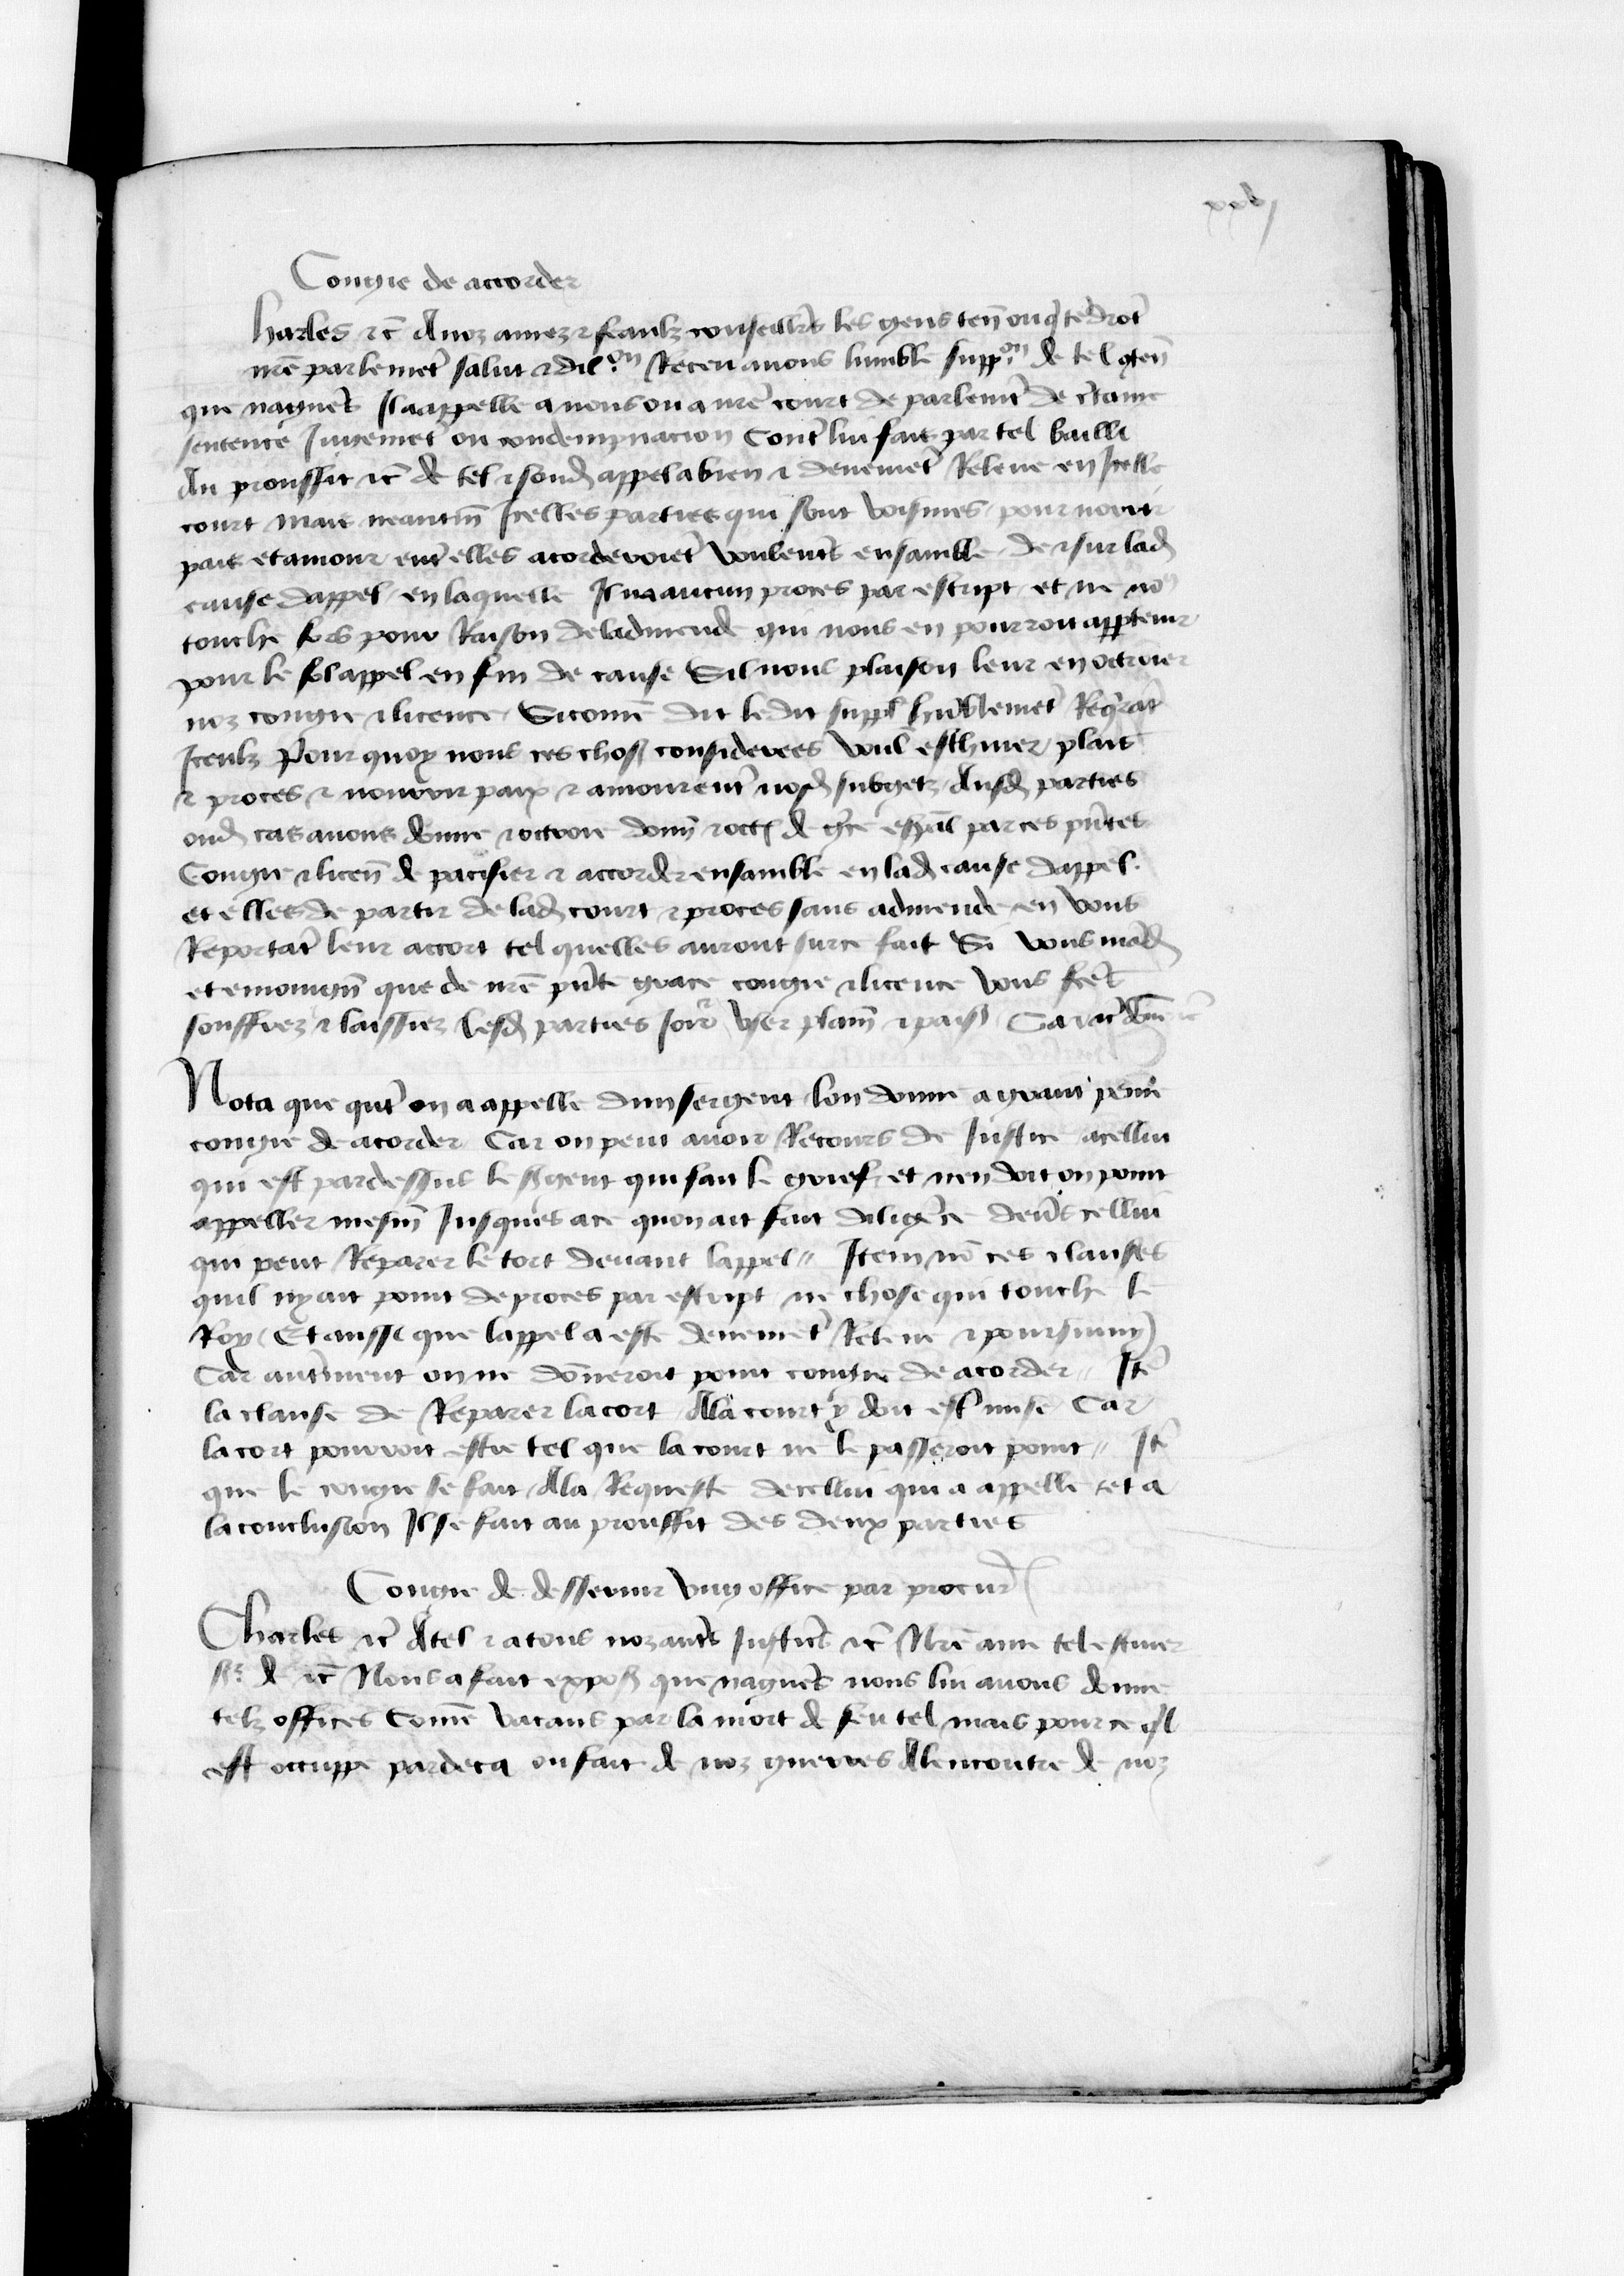 xxvj
Congie de accorder
harles &c A noz amez & feaulx conseillrs les gens ten ou q tedrot
nre parlemet salut & dilon Receu avons lumble suppon de tel gten
que nagueres Il a appelle a nous ou a nre court de parlemt de ctaine
sentence Jugemet ou condempnacion Cont lui faite par tel bailli
Au prouffit &c de tel & sond appel a bien & deuemet Releue en Icelle
court mais neantm Icelles parties qui sont voisines pour norrir
paix et amour entr elles acorderoiet voulentrs ensamble de & sur lad
cause dappel en laquelle Il na aucun proces par escript et ne no9
touche fors pour Raison de ladmende qui nous en pourroit apptenir
pour le fol appel en fin de cause Sil nous plaisoit leur en octroier
noz congie & licence Si come dit ledit suppl humblemet Requat
Iceulx Pour quoy nous ces chos considerees voul eschiuer plait
& proces & nourrir paix & amour entr nosd subgetz Ausd parties
oud cas auons donne & octroie donn & octr de gce espal par ces pntes
Congie & licen de pacifier & accorder ensamble en lad cause dappel.
et elles de partir de lad court & proces sans admende en vous
Reportat leur accort tel quelles auront sur ce fait Si vous mad
et enioingn que de nre pnte grace congie & licence vous fctes
souffrez & laissiez lesd parties Joir vser plain & pais Car &c Donne &c
Nota que qut on a appelle dun sergent lon donne a grant peine
congie de acorder Car on peut auoir Recours de Justice a cellui
qui est pardessus le sgent qui fait le grief et nen doit on point
appeller mesm Jusques a ce quon ait fait diligece deus cellui
qui peut Reparer le tort deuant lappel // Item no ces clauses
quil ny ait point de proces par escript ne chose qui touche le
Roy Et aussi que lappel a este deuemet Releue & poursuiuy
Car autrment on ne donneroit point congie de acorder // Ite
la clause de Reparer lacort A la court y doit est mise Car
lacort pourroit estre tel que la court ne le passeroit point // Ite
que le congie se fait A la Requeste de cellui qui a appelle et a
la conclusion Il se fait au prouffit des deux parties
Congie de desseruir vng office par procur
Charles &c A tel & a tous noz autrs Justicrs &c Nre ame tel escuier
sr de &c Nous a fait expos que nagueres nous lui auons donne
telz offices Come vacans par la mort de feu tel mais pour ce ql
est occuppe pardeca ou fait de noz guerres A lencontre de noz